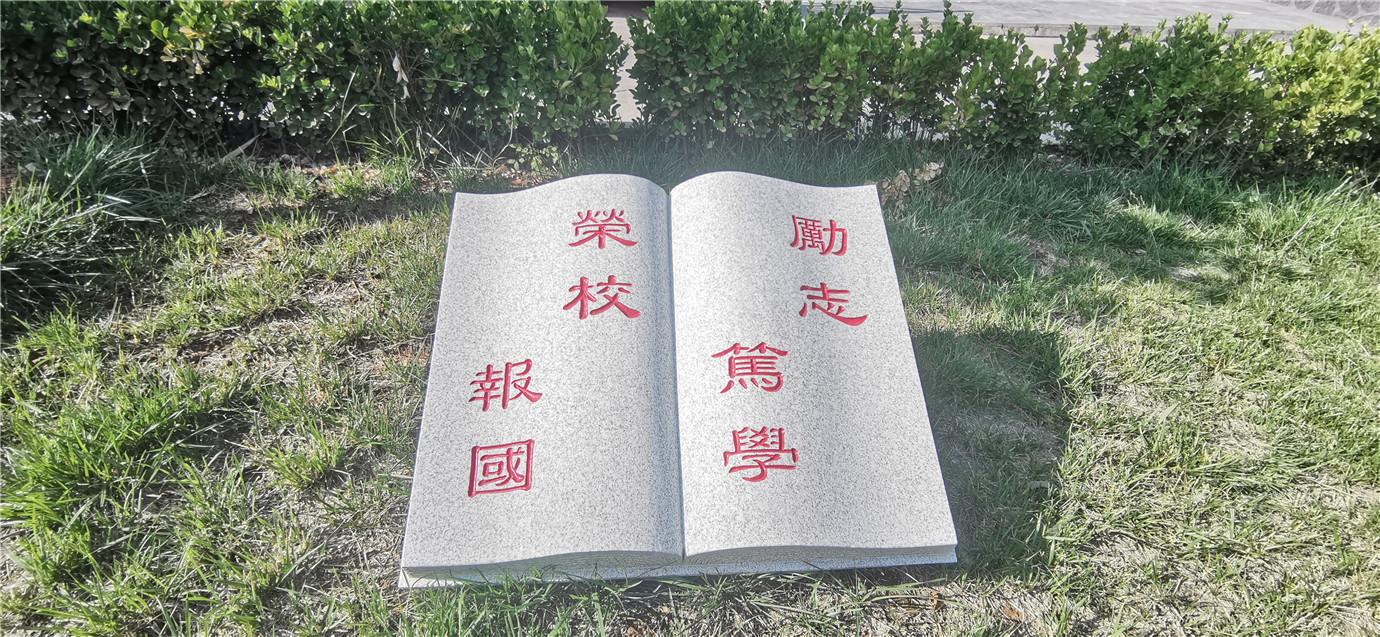 勵志
篤學
榮校
報國